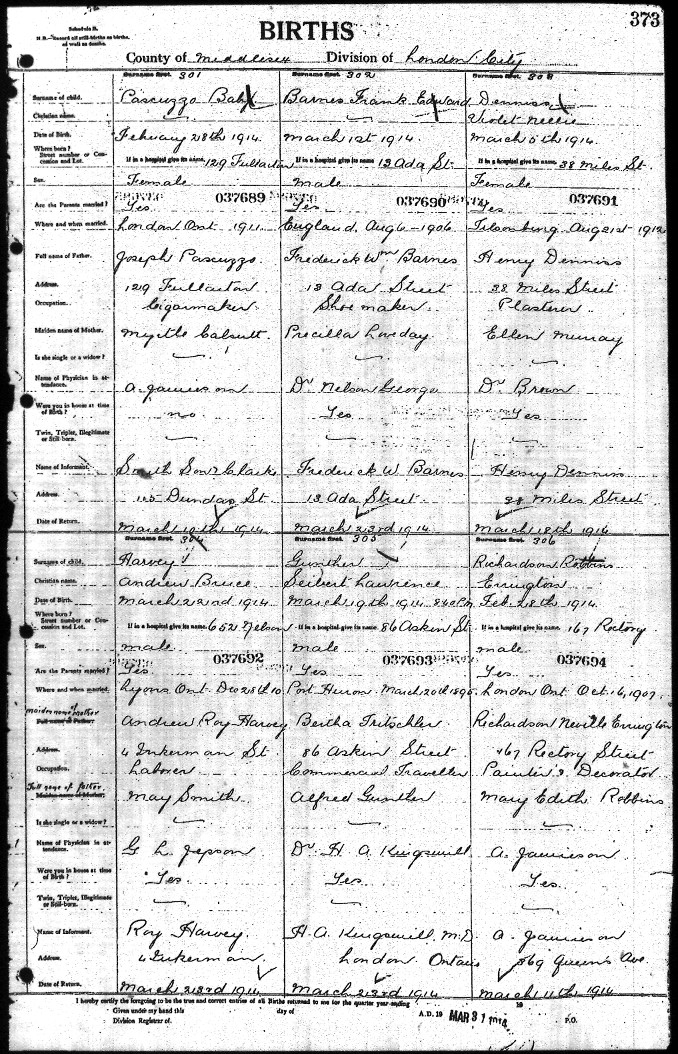 373
Schedule B.
N.B.—Record all still-births as births, as well as deaths.
BIRTHS
County of Middlesex Division of London City
Surname first. 301 Surname first. 302 Surname first. 303
Surname of child. Pascuzzo Baby Barnes Frank Edward Denniss
Christian name. Violet Nellie
Date of Birth. February 28th 1914. March 1st 1914. March 5th 1914.
Where born?
Street number or Concession and Lot. If in a hospital give its name. 129 Fullarton If in a hospital give its name 13 Ada St. If in a hospital give its name. 38 Miles St.
Sex. Female male Female
037689 037690 037691
Are the Parents married? Yes Yes Yes
Where and when married. London Ont 1911 England, Aug 6-1906 Tilsonburg Aug 21st 1912
Full name of Father. Joseph Pascuzzo Frederick Wm Barnes Henry Denniss
Address. 129 Fullarton 13 Ada Street 38 Miles Street
Occupation. Cigarmaker Shoemaker Plasterer
Maiden name of Mother. Myrtle Precilla Loveday Ellen Murray
Is she single or a widow?
Name of Physician in attendance. A. Jamieson Dr Nelson George Dr Brown
Were you in house at time of Birth? no Yes Yes
Twin, Triplet, Illegitimate or Still-born.
Name of Informant. Smith Son & Clarke Frederick W Barnes Henry Denniss
Address. 115 Dundas St 13 Ada Street 38 Miles Street
Date of Return. March 10th 1914 March 23rd 1914 March 18th 1914
Surname first. 304 Surname first. 305 Surname first. 306
Surname of child. Harvey Gunther Richardson Robbins
Christian name. Andrew Bruce Seibert Laurence Errington
Date of Birth. March 22nd 1914 March 19th 1914 8.40 P.M. Feb. 28th 1914
Where born?
Street number or Concession and Lot. If in a hospital give its name. 652 Nelson If in a hospital give its name. 86 Askin St. If in a hospital give its name. 167 Rectory
Sex. male male male
037692 037693 037694
Are the Parents married? Yes Yes Yes
Where and when married. Lyons Ont Dec 28th 10 Port Huron March 20th 1895 London Ont Oct. 16, 1907
maiden name of mother
Full name of Father Andrew Roy Harvey Bertha Tritschler Richardson Neville Errington
Address. 4 Inkerman St 86 Askin Street 167 Rectory Street
Occupation. Laborer Commercial Traveller Painter & Decorator
Full name of father
Maiden name of Mother. May Smith Alfred Gunther Mary Edith Robbins
Is she single or a widow?
Name of Physician in attendance. G L. Jepson Dr. H A Kingsmill A. Jamieson
Were you in house at time of Birth? Yes Yes Yes
Twin, Triplet, Illegitimate or Still-born.
Name of Informant. Roy Harvey H. A. Kingsmill, M.D. A. Jamieson
Address. 4 Inkerman London Ontario 569 Queens Ave.
Date of Return. March 23rd 1914 March 23rd 1914 March 11th 1914
I hereby certify the foregoing to be the true and correct entries of all Births returned to me for the quarter year ending 19
Given under my hand this day of A.D. 19 MAR 31 1914
Division Registrar of. P.O.